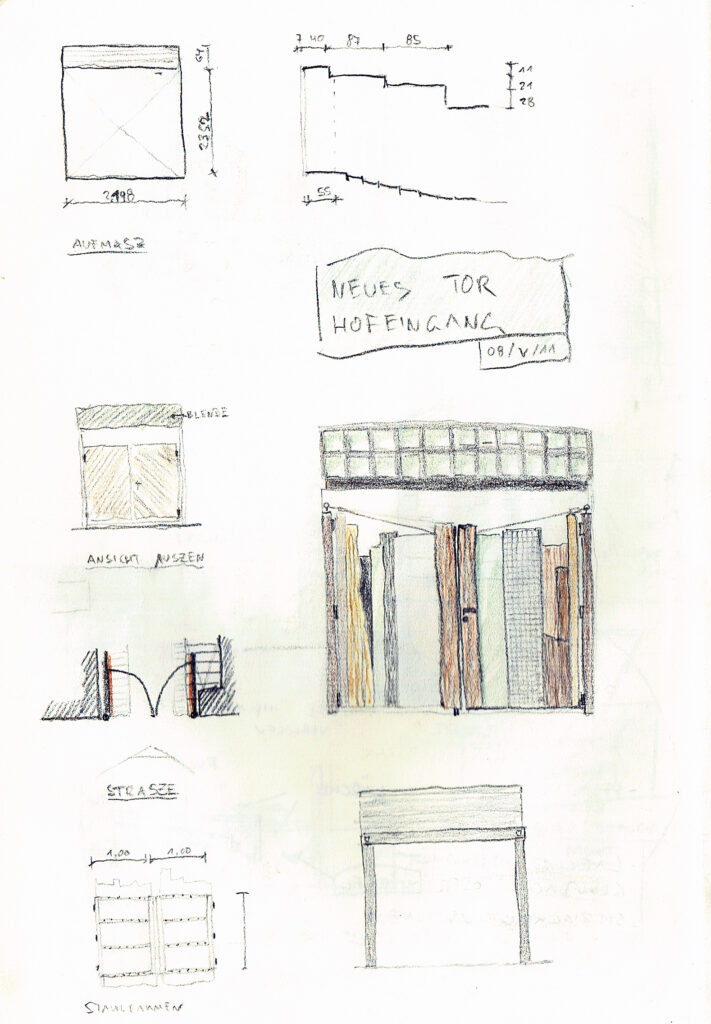 7 40 87 85
64
11
21
28
2352
2498
55
AUFMASZ
NEUES TOR
HOFEINGANG
08/V/11
BLENDE
ANSICHT AUSZEN
STRASZE
1,00 1,00
STAHLRAHMEN